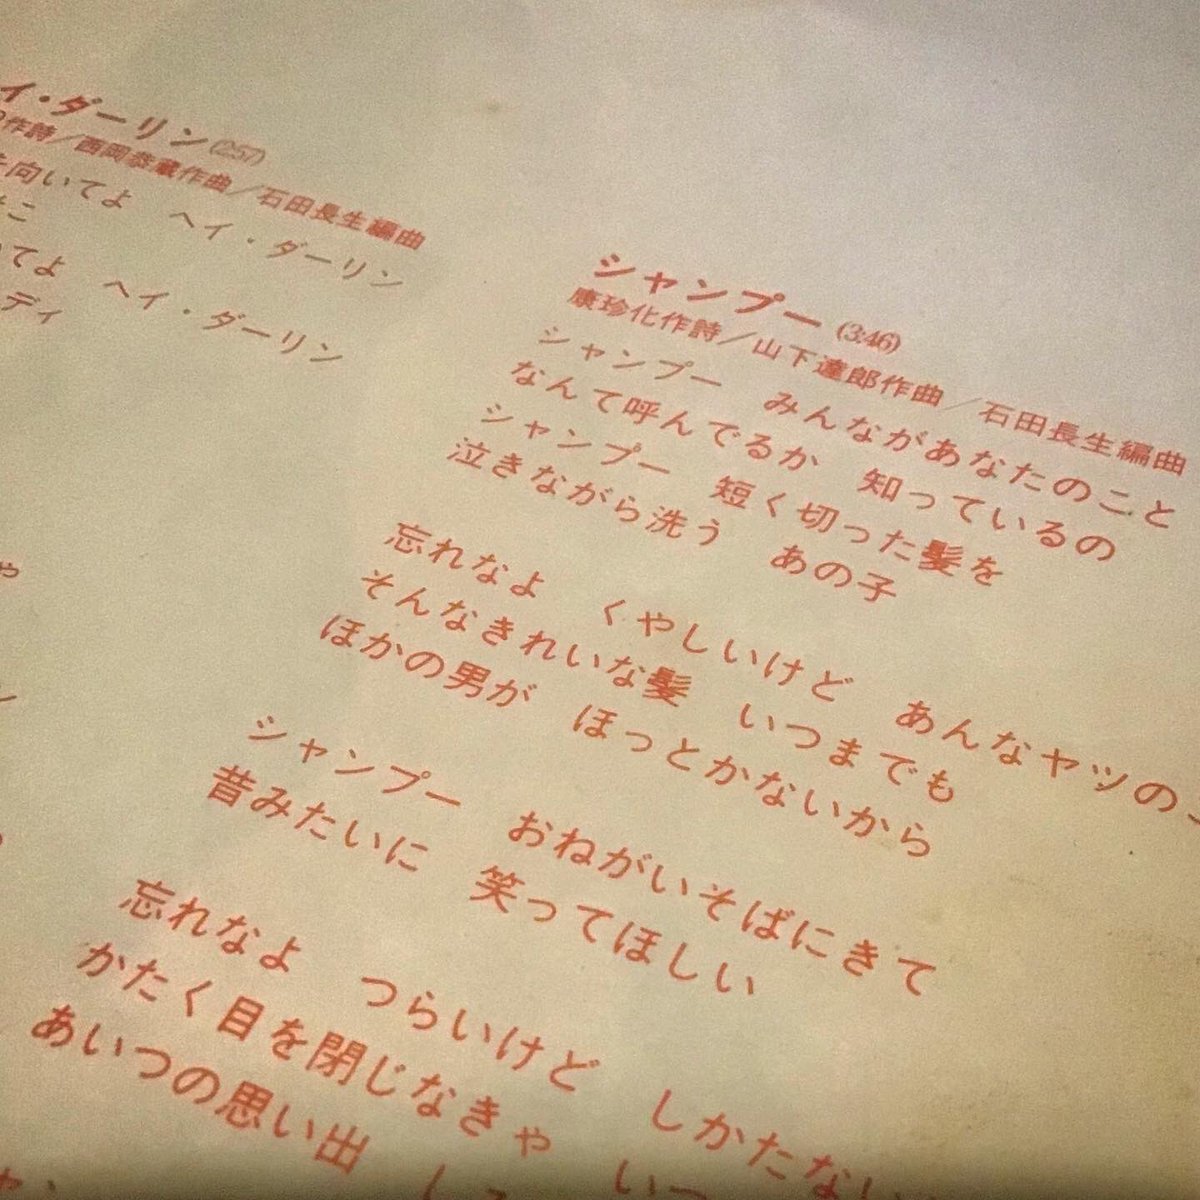 イ・ダーリン(2:57)
作詩／西岡恭蔵作曲／石田長生編曲
向いてよ　ヘイ・ダーリン
こ
てよ　ヘイ・ダーリン
ディ
シャンプー(3:46)
康珍化作詩／山下達郎作曲／石田長生編曲
シャンプー　みんながあなたのこと
なんて呼んでるか　知っているの
シャンプー　短く切った髪を
泣きながら洗う　あの子
忘れなよ　くやしいけど　あんなヤツの
そんなきれいな髪　いつまでも
ほかの男が　ほっとかないから
シャンプー　おねがいそばにきて
昔みたいに　笑ってほしい
忘れなよ　つらいけど　しかたない
かたく目を閉じなきゃ　いっ
あいつの思い出　し